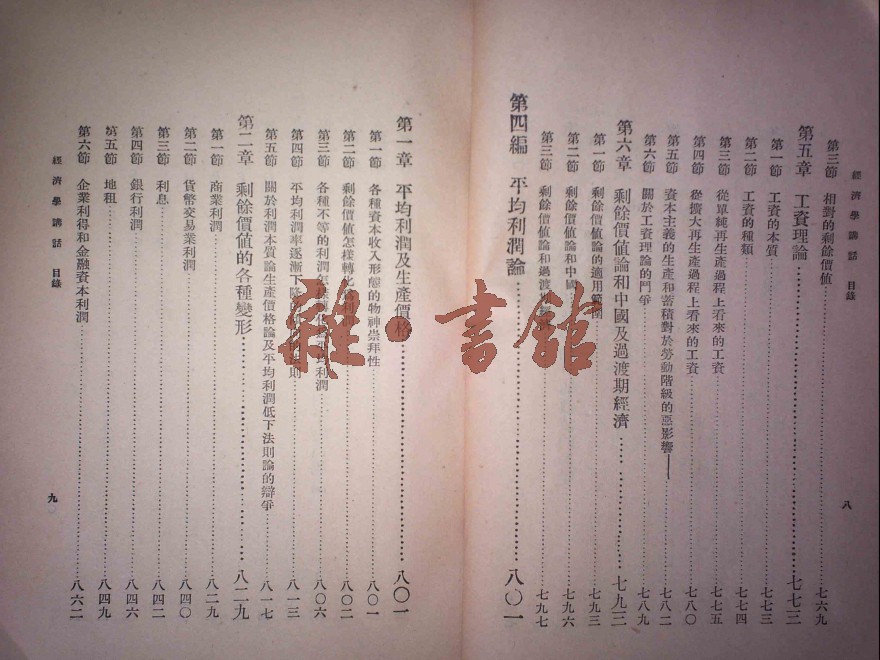 經濟學講話 目錄
八
第三節 相對的剩餘價值……七六九
第五章 工資理論……七七三
第一節 工資的本質……七七三
第二節 工資的種類……七七四
第三節 從單純再生產過程上看來的工資……七七五
第四節 從擴大再生產過程上看來的工資……七八〇
第五節 資本主義的生產和蓄積對於勞動階級的惡影響……七八二
第六節 關於工資理論的鬥爭……七八九
第六章 剩餘價值論和中國及過渡期經濟……七九三
第一節 剩餘價值論的適用範圍……七九三
第二節 剩餘價值論和中國……七九六
第三節 剩餘價值論和過渡……七九七
第四編 平均利潤論……八〇一
第一章 平均利潤及生產價格……八〇一
第一節 各種資本收入形態的物神崇拜性……八〇一
第二節 剩餘價值怎樣轉化……利潤……八〇二
第三節 各種不等的利潤怎樣……平均利潤……八〇六
第四節 平均利潤率逐漸下……則……八一三
第五節 關於利潤本質論生產價格論及平均利潤低下法則論的辯爭……八一七
第二章 剩餘價值的各種變形……八二九
第一節 商業利潤……八二九
第二節 貨幣交易業利潤……八四〇
第三節 利息……八四二
第四節 銀行利潤……八四六
第五節 地租……八四九
第六節 企業利得和金融資本利潤……八六二
經濟學講話 目錄
九
雜·書館